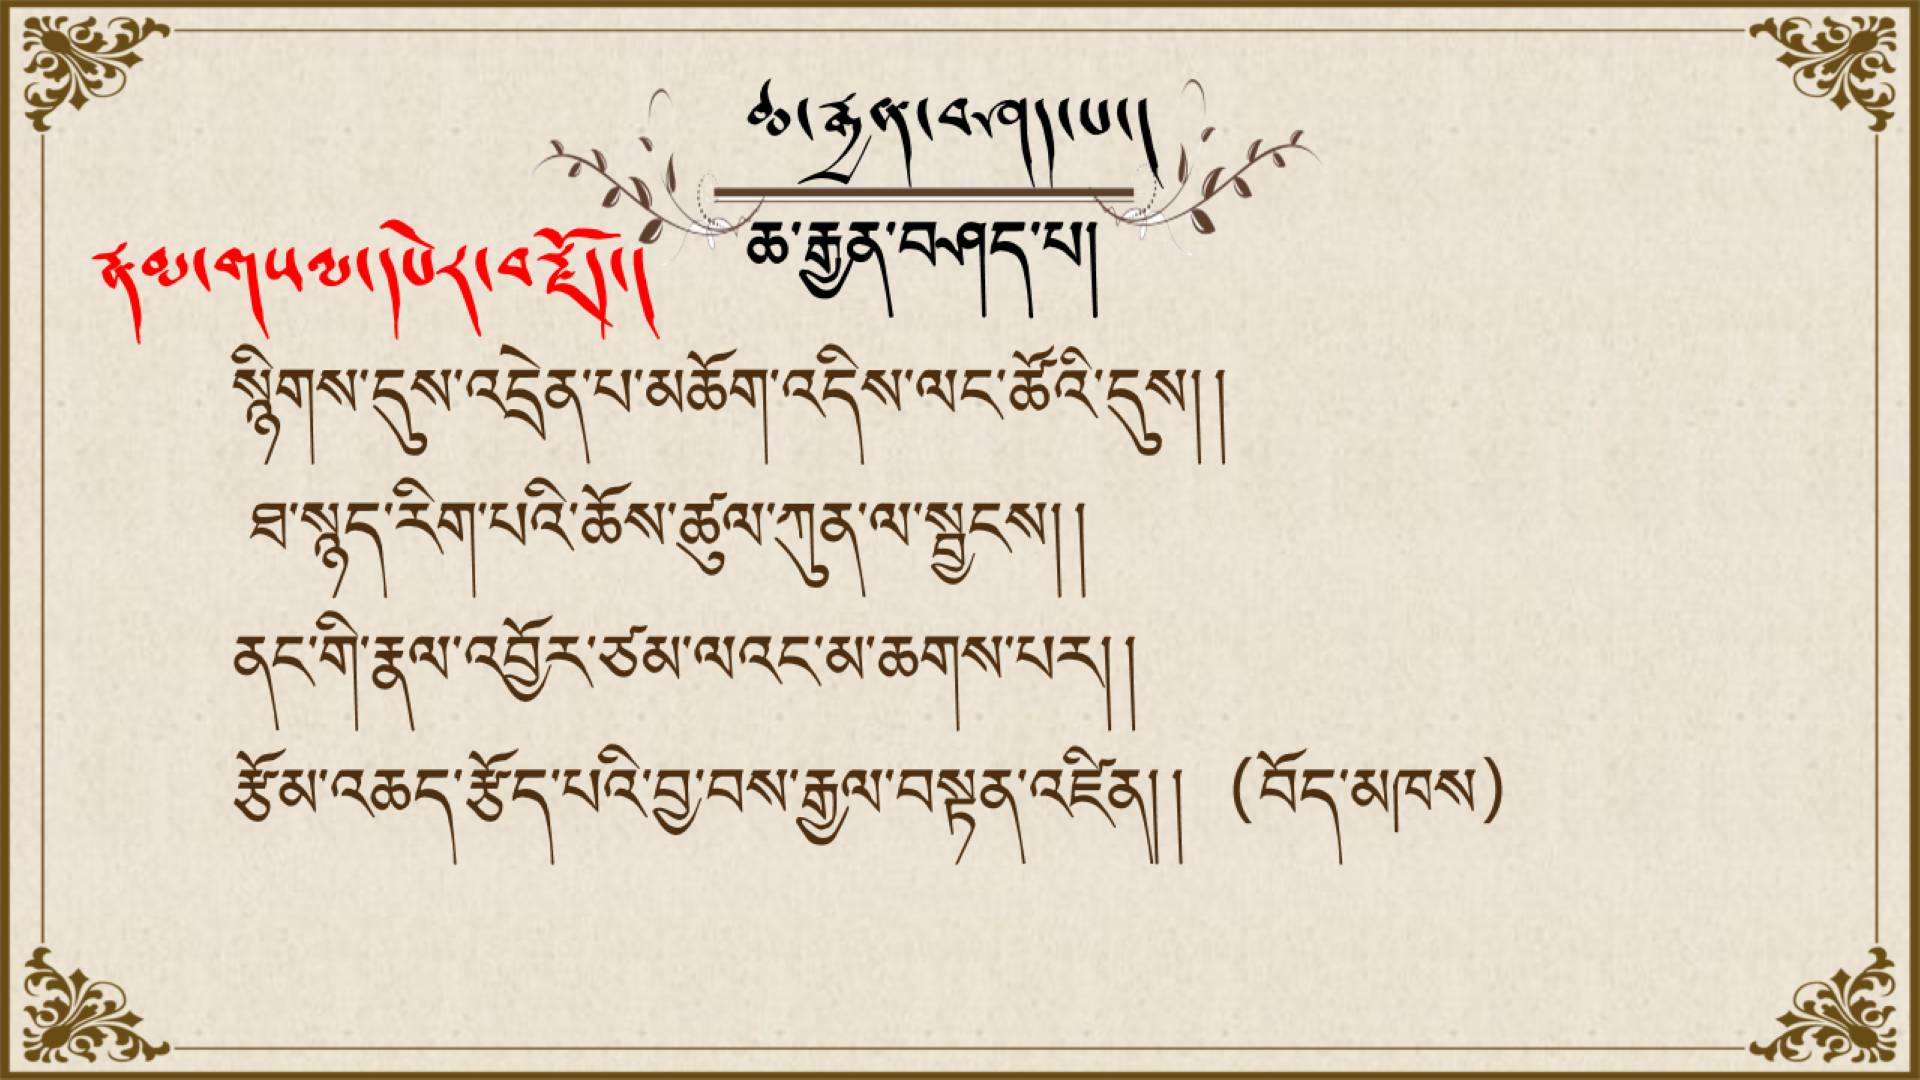 ཆ་རྐྱེན་བཤད་པ།
ཆ་རྐྱན་བཤད་པ།
དཔེར་བརྗོད།
སྙིགས་དུས་འདྲེན་པ་མཆོག་འདིས་ལང་ཚོའི་དུས།།
ཐ་སྙད་རིག་པའི་ཆོས་ཚུལ་ཀུན་ལ་སྦྱངས།།
ནང་གི་རྣལ་འབྱོར་ཙམ་ལའང་མ་ཆགས་པར།།
རྩོམ་འཆད་རྩོད་པའི་བྱ་བས་རྒྱལ་བསྟན་འཛིན།། (བོད་མཁས)